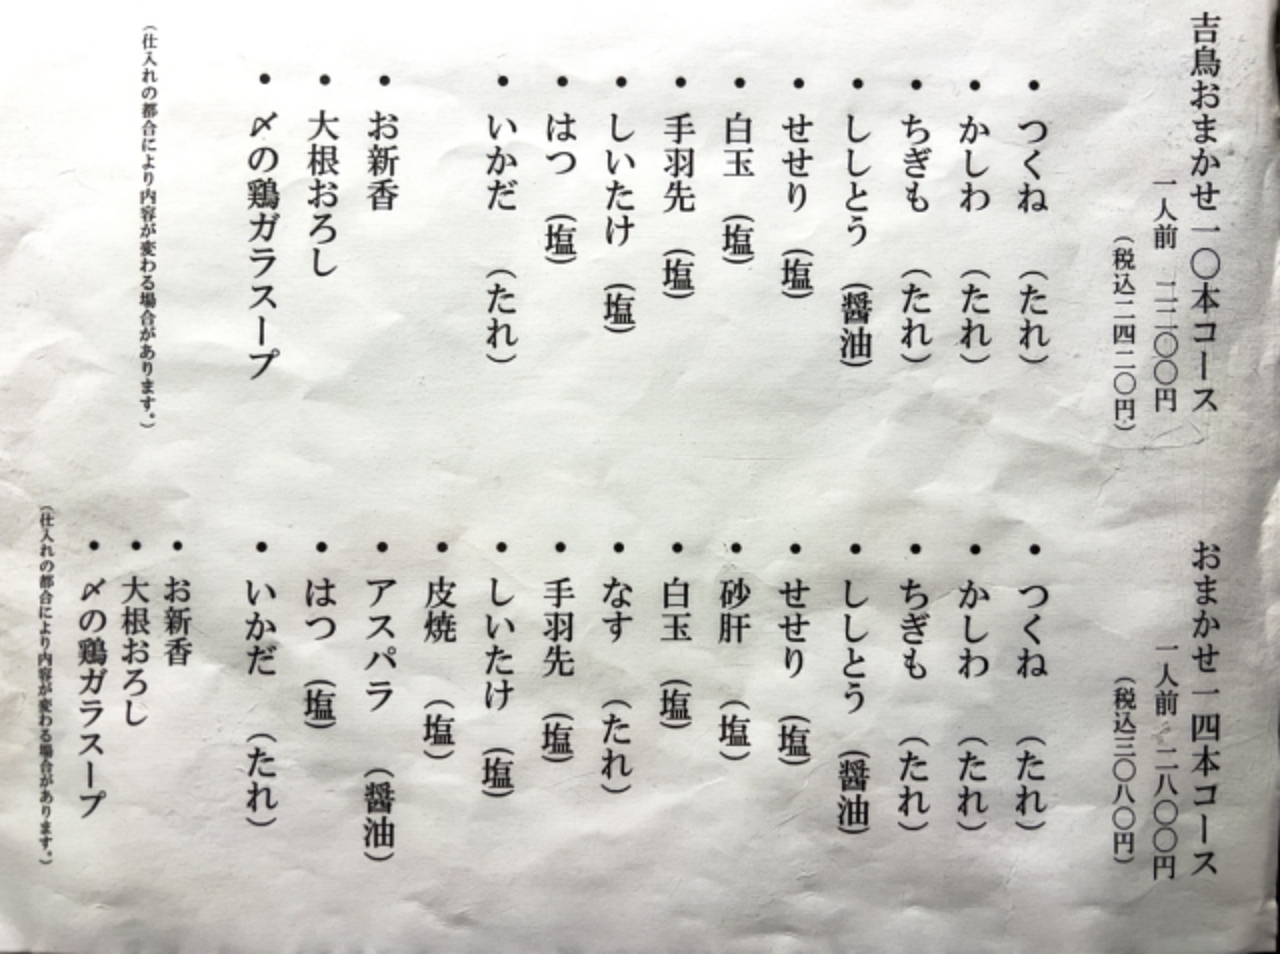 吉鳥おまかせ一〇本コース
一人前 二二〇〇円
（税込二四二〇円）
・つくね （たれ）
・かしわ （たれ）
・ちぎも （たれ）
・ししとう （醤油）
・せせり （塩）
・白玉 （塩）
・手羽先 （塩）
・しいたけ （塩）
・はつ （塩）
・いかだ （たれ）
・お新香
・大根おろし
・〆の鶏ガラスープ
（仕入れの都合により内容が変わる場合があります。）
おまかせ一四本コース
一人前 二八〇〇円
（税込三〇八〇円）
・つくね （たれ）
・かしわ （たれ）
・ちぎも （たれ）
・ししとう （醤油）
・せせり （塩）
・砂肝 （塩）
・白玉 （塩）
・なす （たれ）
・手羽先 （塩）
・しいたけ （塩）
・皮焼 （塩）
・アスパラ （醤油）
・はつ （塩）
・いかだ （たれ）
・お新香
・大根おろし
・〆の鶏ガラスープ
（仕入れの都合により内容が変わる場合があります。）